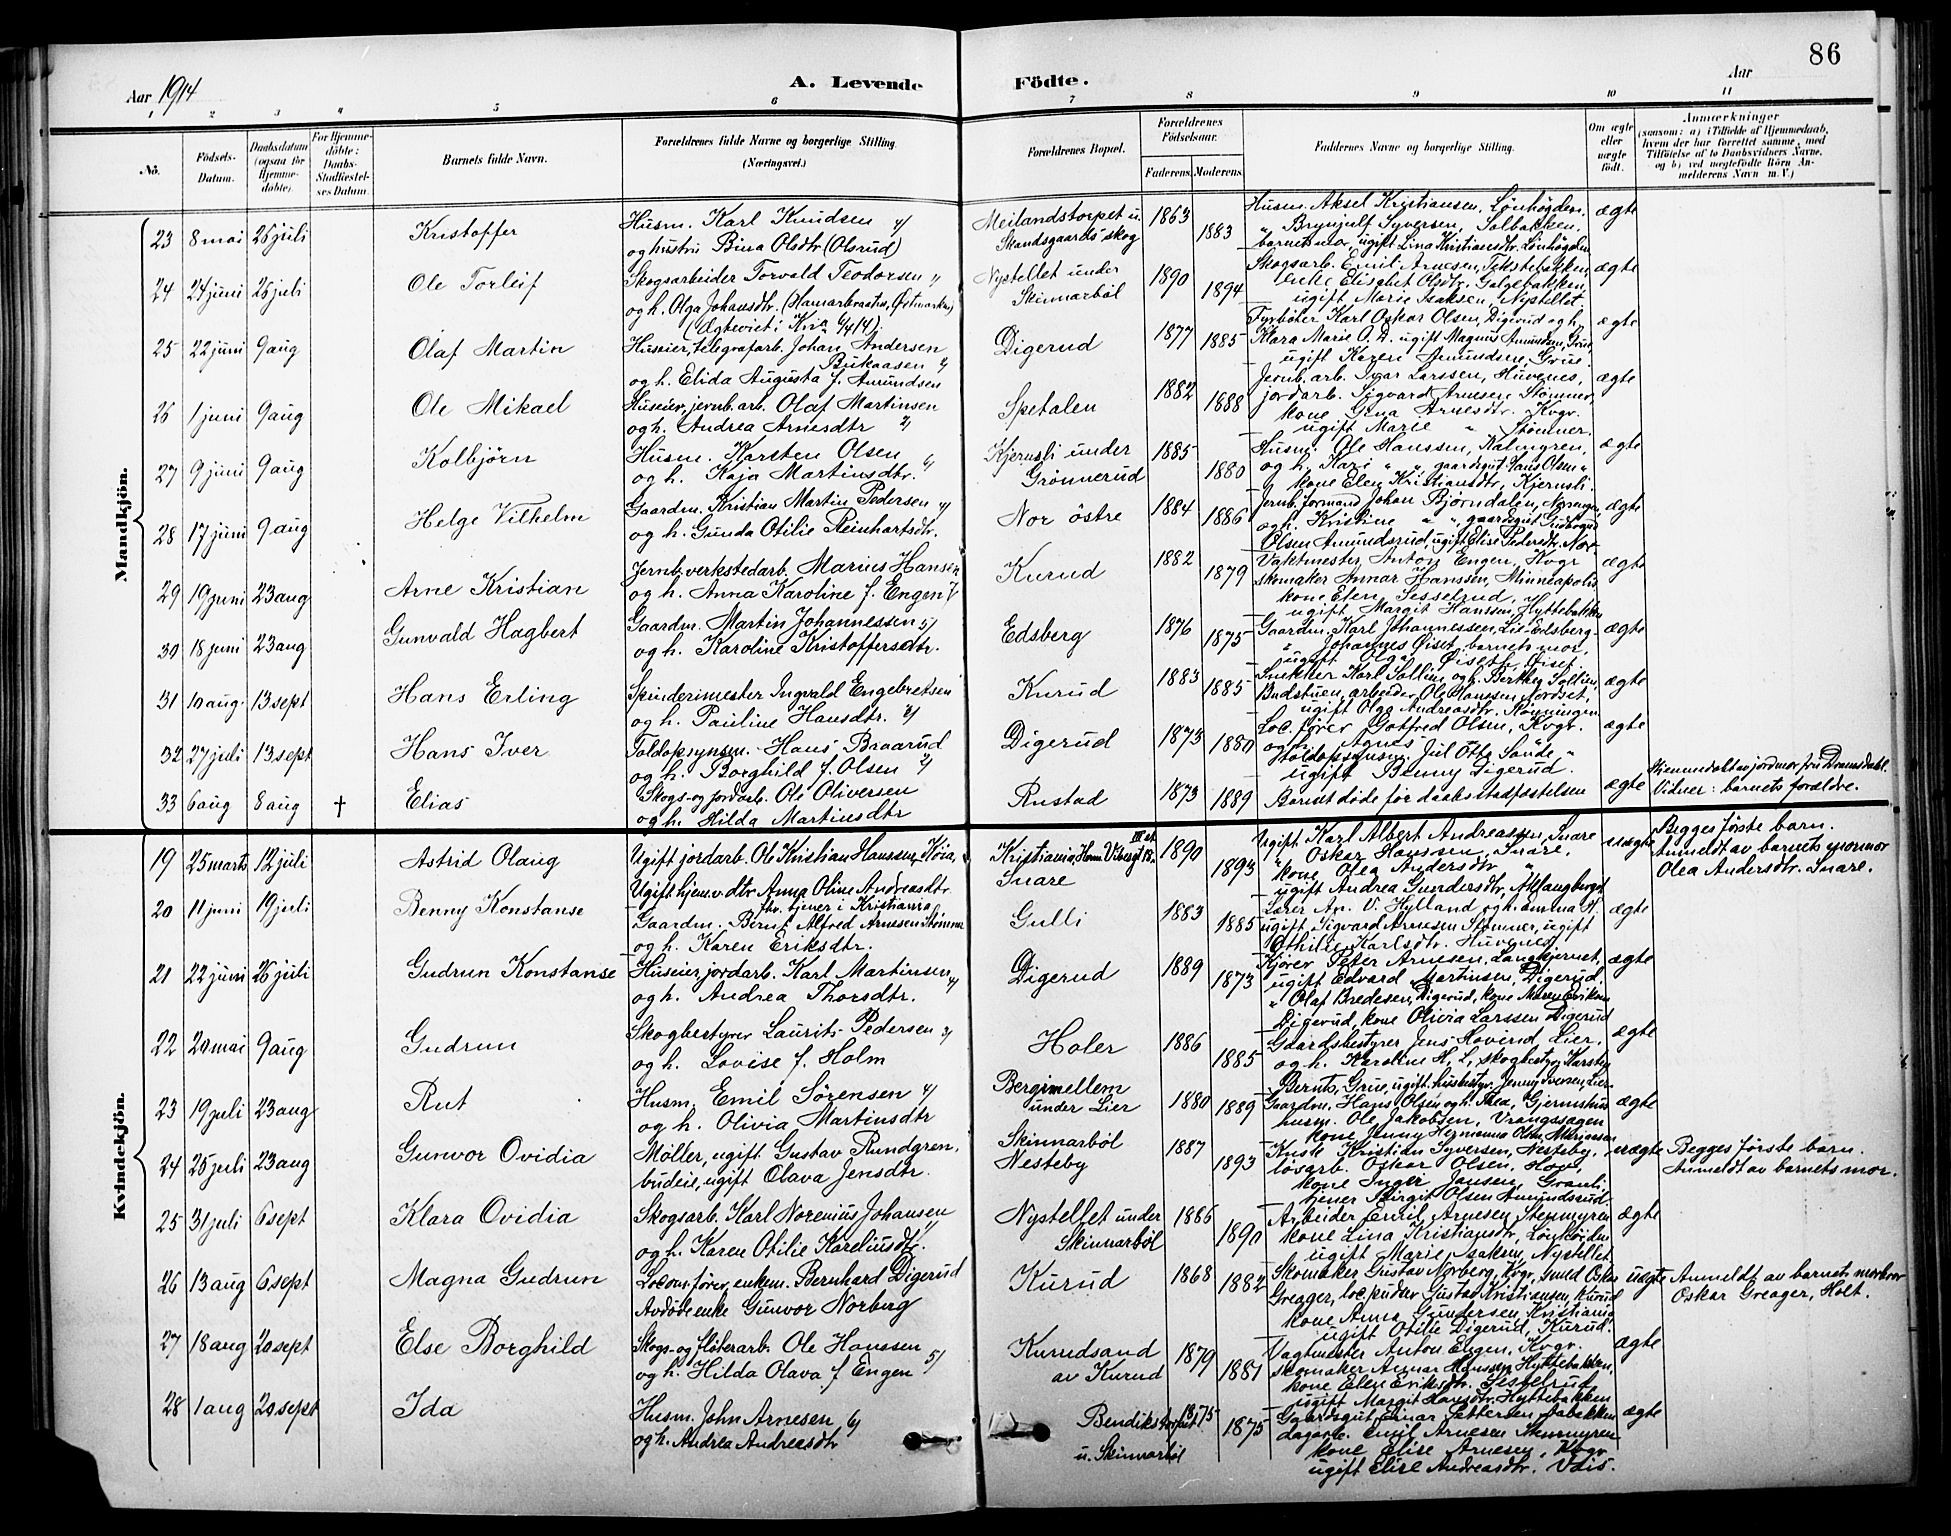 86
Aar 1914
A. Levende Födte.
Aar
1 2 3 4 5 6 7 8 9 10 11
No.
Födsels-Datum.
Daabsdatum (ogsaa for Hjemmedöbte).
For Hjemmedöbte: Daabs-Stadfæstelses Datum.
Barnets fulde Navn.
Forældrenes fulde Navne og borgerlige Stilling. (Næringsvei.)
Forældrenes Bopæl.
Forældrenes Födselsaar.
Faderens. Moderens.
Faddernes Navne og borgerlige Stilling.
Om ægte eller uægte födt.
Anmærkninger
(saasom: a) i Tilfælde af Hjemmedaab, hvem der har forrettet samme, med Tilföielse af to Daabsvidners Navne, og b) ved uægtefödte Börn Anmelderens Navn m. V.)
Mandkjön.
23 8 mai 26 juli Kristoffer Husm. Karl Knudsen 4/ Meilandstorpet u. 1863 Husm. Aksel Kristiansen, Lönhögden. ægte
og hustru Bina Olsdtr (Olsrud) Skandsgaards skog 1883 " Brynjulf Syversen, Solbakken.
barnets mor, ugift Lina Kristiansdtr. Lönhögden
24 24 juni 26 juli Ole Torleif Skogsarbeider Torvald Teodorsen Nystellet under 1890 Skogsarb. Emil Arnesen, ægte
og h. Olga Johansdtr. Skinnarböl 1894 enke Elisabet Olsdtr, Galgebakken,
Ægteviet i Kr.a 4/4 14). ugift Marie Isaksen, Nystellet.
25 22 juni 9 aug Olaf Martin Huseier, telegrafarb. Johan Andersen Digerud 1877 Fyrböter Karl Oskar Olsen, Digerud og h. ægte
Bukaasen 1885 Klara Marie O. D. ugift Magnus Amundsen, Grue,
og h. Elida Augusta f. Amundsen ugift Karen Amundsen, Grue
26 1 juni 9 aug Ole Mikael Huseier, jernb. arb. Olaf Martinsen Spetalen 1882 Jernb. arb. Ivar Larssen, Huvenes, ægte
og h. Andrea Arnesdtr 2/ 1888 jordarb. Sigvard Arnesen Stömner,
kone Gina Arnesdtr. Kvgr.
ugift Marie " Stömner.
27 9 juni 9 aug Kolbjörn Husm. Karsten Olsen Kjernsli under 1885 Husm. Ole Hanssen, Kalmyren, ægte
og h. Kaja Martinsdtr. Grönnerud 1880 og h. Kari " ", gaardsgut Hans Olsen "
kone Elen Kristiansdtr, Kjernsli.
28 17 juni 9 aug Helge Vilhelm Gaardm. Kristian Martin Pedersen 4/ Nor östre 1884 Jernb. formand Johan Björndalen, ægte
og h. Gunda Otilie Reinhartsdtr. 1886 og h. Kristine " " gaardsgut
Olsen Amundsrud, ugift Elise Pedersdtr. Nor
29 19 juni 23 aug Arne Kristian Jernb. verkstedarb. Marius Hansen Kurud 1882 Vaktmester Anton Engen, Kvgr ægte
og h. Anna Karoline f. Engen 1879 skomaker Annar Hanssen, Minneapolis
kone Elen Sesselrud,
ugift Margit Hanssen, Hyttebakken
30 18 juni 23 aug Gunvald Hagbert Gaardm. Martin Johannessen 5/ Edsberg 1876 Gaardm. Karl Johannessen, Lie-Edsberg ægte
og h. Karoline Kristoffersdtr. 1875 " Johannes Öiset, barnets mor,
ugift Olga Öiset, Öiset.
31 10 aug. 13 sept Hans Erling Spinderimester Ingvald Engebretsen Kurud 1883 Snekker Karl Solli og h. Berthe Sollien, ægte
og h. Pauline Hansdtr. 1885 Budstuen, arbeider Ole Hanssen Nordset,
ugift Olga Andreasdtr.
32 27 juli 13 sept Hans Iver Toldopsynsm. Hans Braarud Digerud 1873 Loc. förer Gotfred Olsen, Kvgr. ægte
og h. Borghild f. Olsen 2/ 1880 og h. Agnes
toldopsynsm. Jul Otto Sande "
ugift Benny Digerud.
33 6 aug 8 aug † Elias Skogs- og jordarb. Ole Oliversen Rustad 1873 Barnet döde för daabsstadfæstelsen ægte Hjemmedöbt av jordmor fru Dramsdahl.
og h. Hilda Martinsdtr 1889 Vidner: barnets forældre.
Kvindekjön.
19 25 marts 12 juli Astrid Olaug Ugift jordarb. Ole Kristian Hanssen, Höia, Kristiania, Herm. Vibesgt 18. 1890 Ugift Karl Albert Andreassen, Snare uægte Begges förste barn.
Ugift hjemv. dtr. Anna Oline Andreasdtr. Snare 1893 " Oskar Hanssen, Snare, Anmeldt av barnets mormor
fhv. tjener i Kristiania kone Olea Andersdtr " Olea Andersdtr. Snare.
ugift Andrea Gundersdtr,
20 11 juni 19 juli Benny Konstanse Gaardm. Bernt Alfred Arnesen Stömner Gulli 1883 Lærer An. V. Hylland og h. Emma H. ægte
og h. Karen Eriksdtr. 1885 ugift Sigvard Arnesen Stömner, ugift
Othilie Karlsdtr. Huvenes
21 22 juni 26 juli Gudrun Konstanse Huseier, jordarb. Karl Martinsen Digerud 1889 Kjörer Peter Arnesen, Langtjernet, ægte
og h. Andrea Thorsdtr. 1873 ugift Edvard Martinsen, Digerud,
" Olaf Bredesen, Digerud, kone Maren Eriksen
Digerud, kone Olivia Larssen Digerud
22 20 mai 9 aug Gudrun Skogbestyrer Laurits Pedersen 2/ Holer 1886 Gaardsbestyrer Jens Hoverud Lier, ægte
og h. Lovise f. Holm 1885 og h. Karoline H. L., skogbestyr. Karsten
Bernts, Grue, ugift. husbestyr. Jenny Iversen, Lier
23 19 juli 23 aug Rut Husm. Emil Sörensen 4/ Bergimellem 1880 Gaardm. Hans Olsen og h. Thea, Gjermshus ægte
og h. Olivia Martinsdtr under Lier 1889 husm. Ole Jakobsen, Vrangsagen
kone Jenny Hermanna Olsen
24 25 juli 23 aug Gunvor Ovidia Möller, ugift Gustav Rundgren, Skinnarböl 1887 Kusk Kristian Syversen, Nesteby, uægte Begges förste barn.
budeie, ugift Olava Jensdtr. Nesteby 1893 lösarb. Oskar Olsen, Hove, Anmeldt av barnets mor.
kone Inger Jansen, Granli
tjener Birgit Olsen Amundsrud
25 31 juli 6 sept Klara Ovidia Skogsarb. Karl Norenius Johansen Nystellet under 1886 Arbeider Emil Arnesen, Stenmyren ægte
og h. Karen Otilie Kareliusdtr. Skinnarböl 1890 kone Lina Kristiansdtr, Lönhögden
ugift Marie Isaksen, Nystellet
26 13 aug 6 sept Magna Gudrun Locom. förer, enkem. Bernhard Digerud Kurud 1868 Skomaker Gustav Norberg, Kvgr, smed Oskar uægte Anmeldt av barnets morbror
Avdöde enke Gunvor Norberg 1882 Greager, loc. pudser Gustav Kristiansen, Kurud Oskar Greager, Holt.
kone Anna Gundersen, Kristiania
ugift Otilie Digerud, Kurud.
27 18 aug 20 sept Else Borghild Skogs- og flöterarb. Ole Hanssen Kurudsand 1879 Vagtmester Anton Engen, Kvgr. ægte
og h. Hilda Olava f. Engen 5/ av Kurud 1881 skomaker Annar Hanssen, Hyttebakken,
kone Elen Eriksdtr. Sesselrud
ugift Margit Hansdtr. Hyttebakken
28 1 aug 20 sept Ida Husm. John Arnesen 6/ Bendikstorpet 1875 Gaardsgut Einar Pettersen Aabakken ægte
og h. Andrea Andreasdtr u. Skinnarböl 1875 dagarb. Emil Arnesen Stenmyren
kone Elise Arnesen, Kvgr
ugift Elise Andreasdtr. Vais.